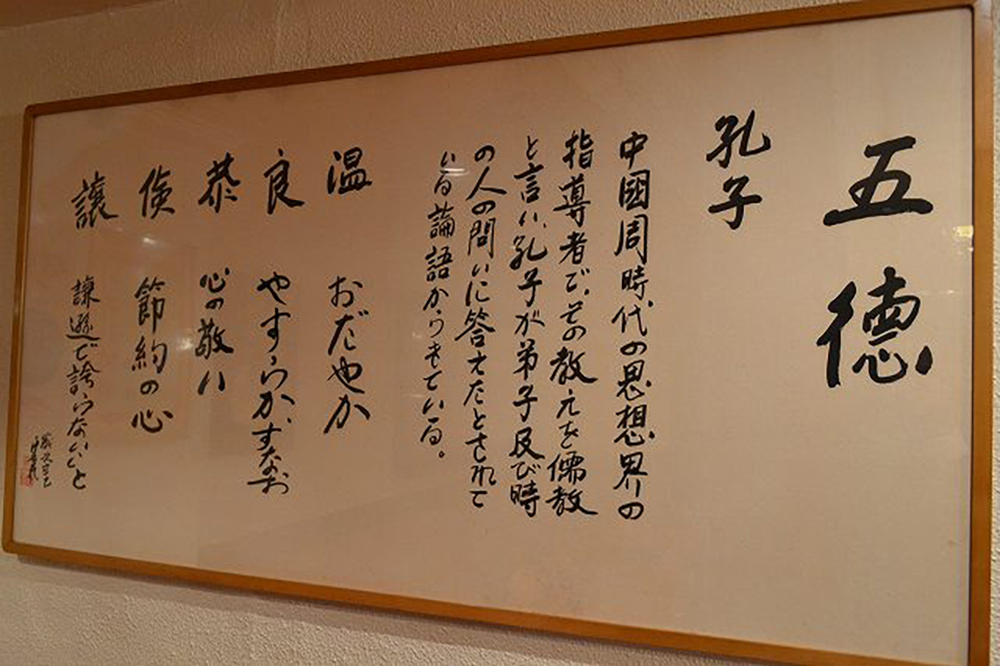 五徳
孔子
中國周時代の思想界の
指導者で、その教えを儒教
と言い、孔子が弟子及び時
の人の問いに答えたとされて
いる論語からきている。
温 おだやか
良 やすらか、すなお
恭 心の敬い
倹 節約の心
譲 謙遜で誇らないこと